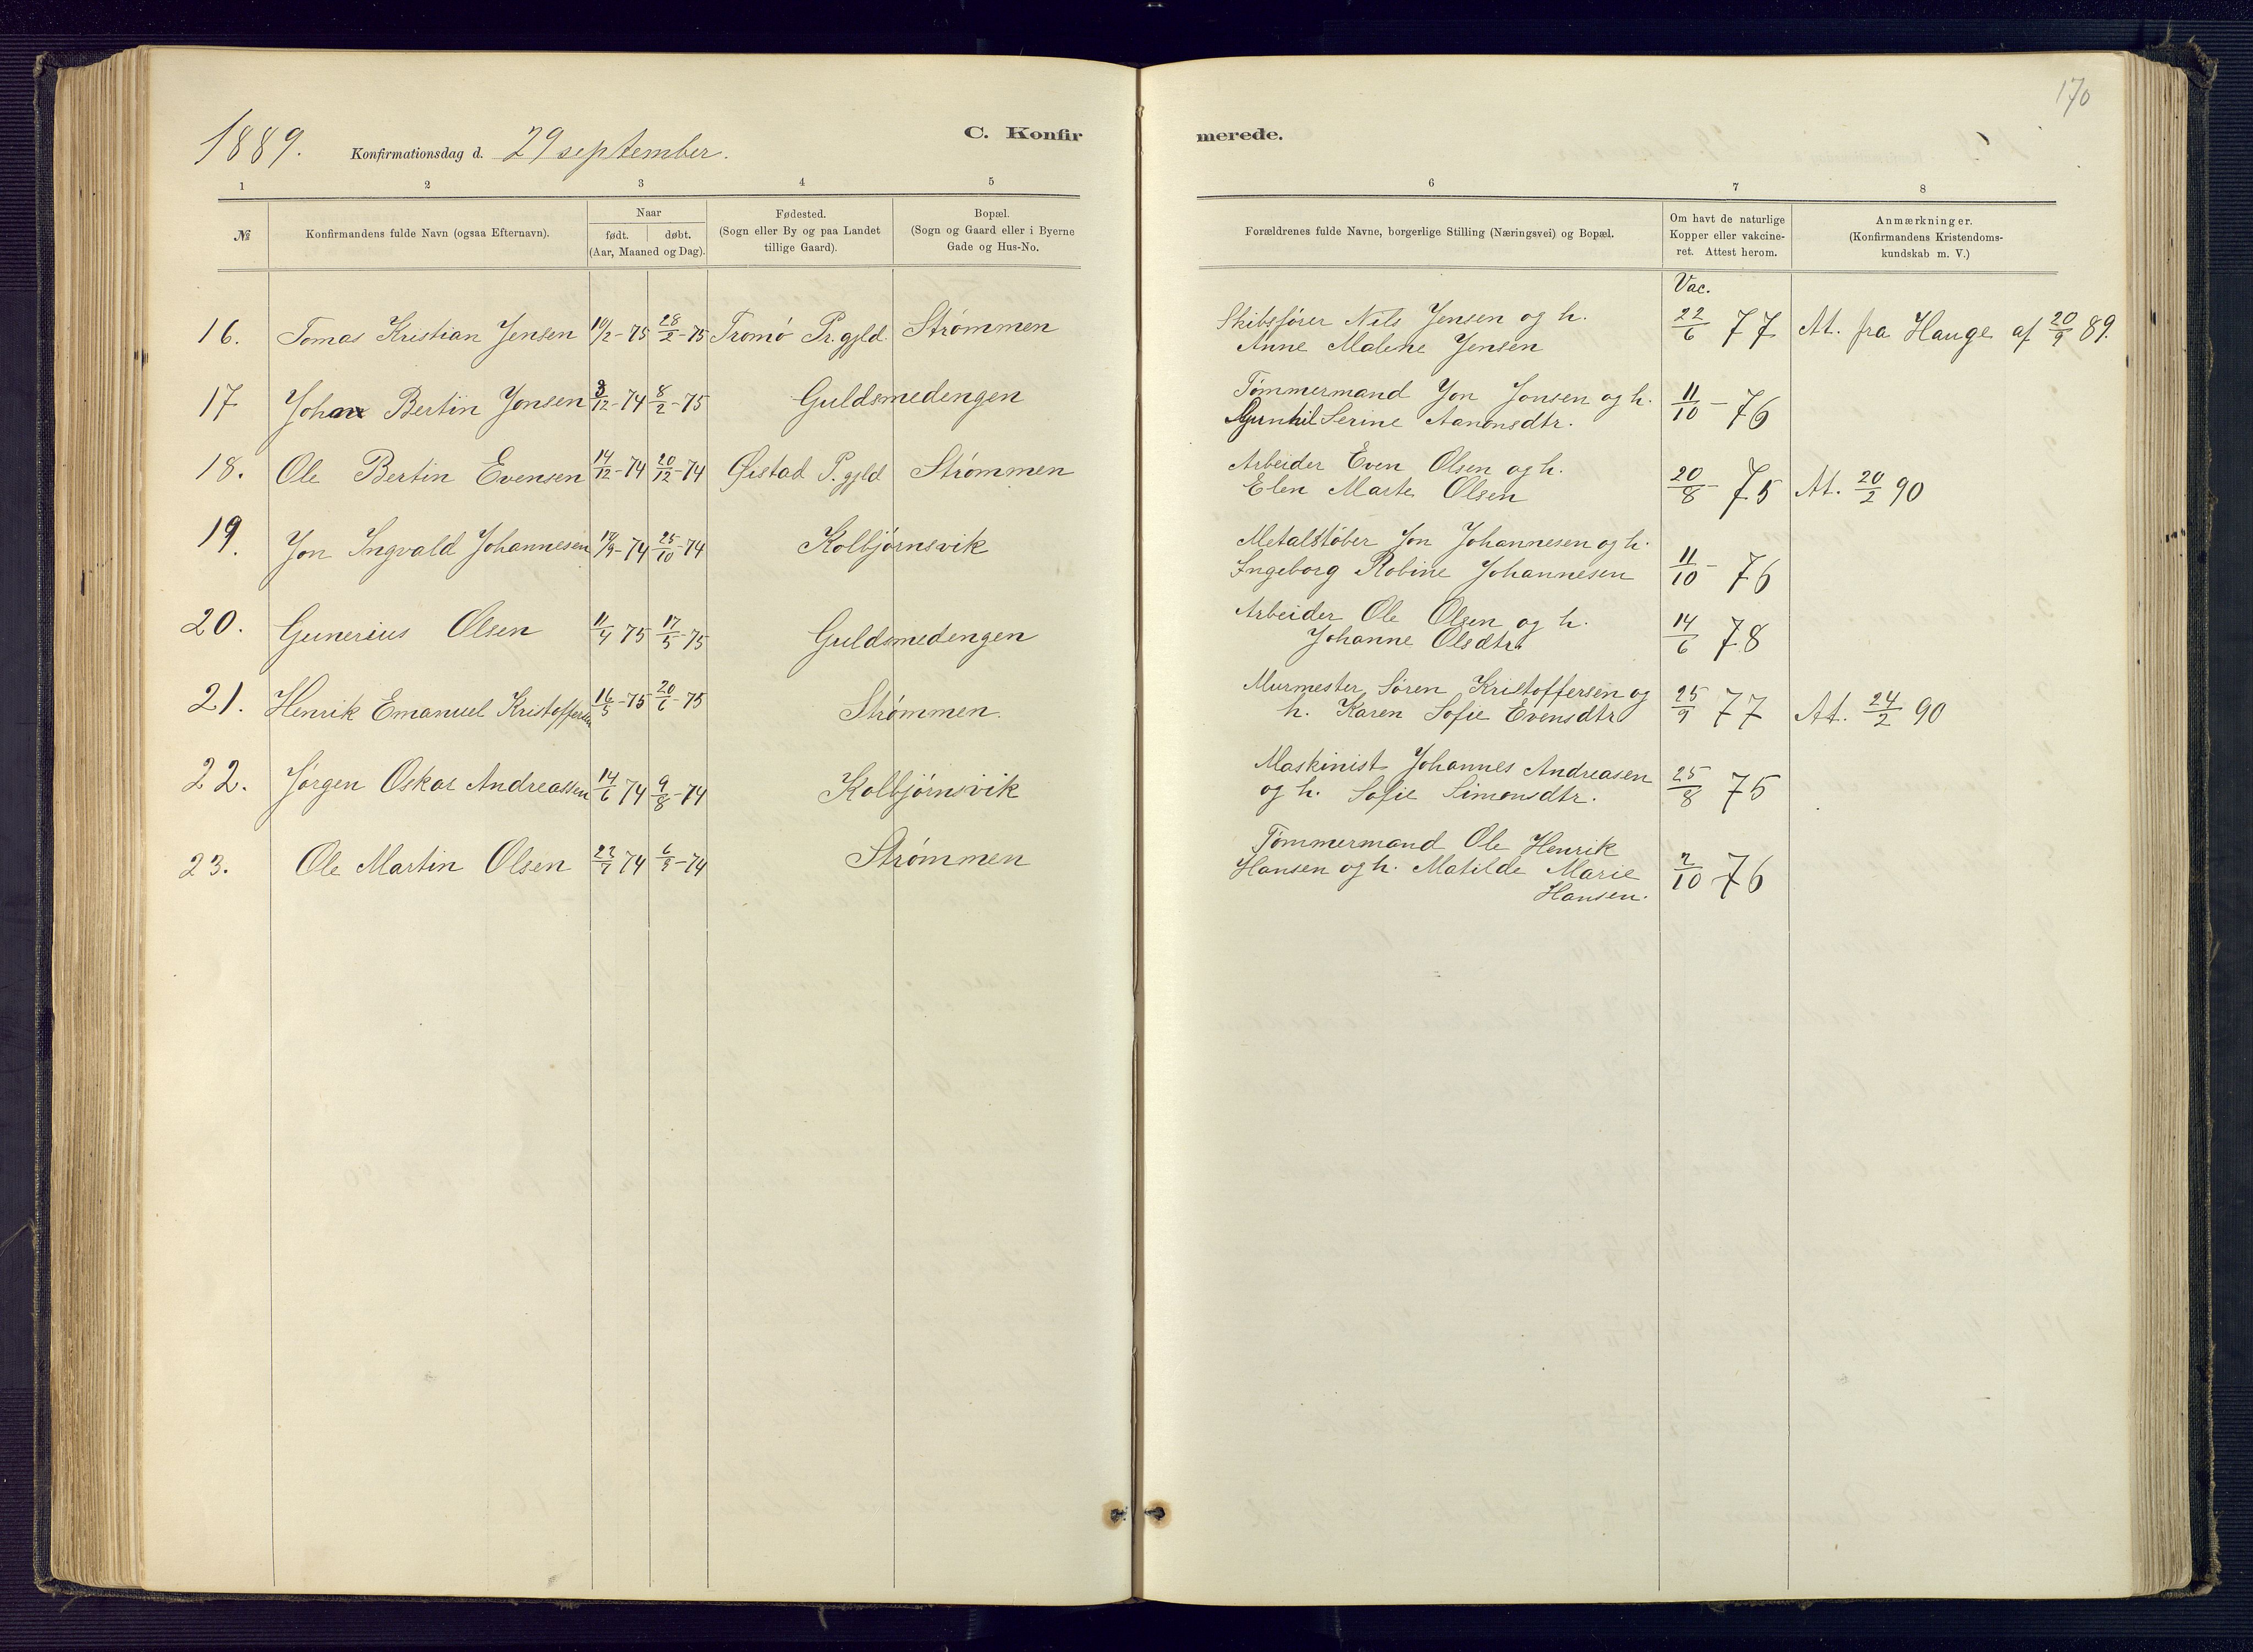 170
1889. Konfirmationsdag d. 29 september.
C. Konfirmerede.
1 2 3 4 5 6 7 8
№ Konfirmandens fulde Navn (ogsaa Efternavn). Naar født. døbt. (Aar, Maaned og Dag). Fødested. (Sogn eller By og paa Landet tillige Gaard). Bopæl. (Sogn og Gaard eller i Byerne Gade og Hus-No. Forældrenes fulde Navne, borgerlige Stilling (Næringsvei) og Bopæl. Om havt de naturlige Kopper eller vakcineret. Attest herom. Anmærkninger. (Konfirmandens Kristendomskundskab m. V.)
Vac.
16. Tomas Kristian Jensen 10/2-75 28/2-75 Tromö Pr.gjld. Strömmen Skibsförer Nils Jensen og h. 22/6 77 At. fra Hauge af 20/9 89.
Anne Malene Jensen
17 Johan Bertin Jonsen 3/12-74 8/2-75 Guldsmedengen Tömmermand Jon Jonsen og h. 11/10-76
Gunhil Serine Aanonsdtr.
18. Ole Bertin Evensen 14/12-74 20/12-74 Öistad P.gjld Strömmen Arbeider Even Olsen og h. 20/8-75 At. 20/2 90
Elen Marte Olsen
19. Jon Ingvald Johannesen 19/9-74 25/10-74 Kolbjörnsvik Metalstöber Jon Johannesen og h. 11/10-76
Ingeborg Robine Johannesen
20. Gunerius Olsen 11/4 75 17/5-75 Guldsmedengen Arbeider Ole Olsen og h. 14/6 78
Johanne Olsdtr.
21. Henrik Emanuel Kristoffersen 16/5-75 20/6-75 Strömmen. Murmester Sören Kristoffersen og 25/9 77 At. 24/2 90
h. Karen Sofie Evensdtr
22. Jörgen Oskar Andreassen 14/6 74 9/8-74 Kolbjörnsvik Maskinist Johannes Andreasen 25/8 75
og h. Sofie Simonsdtr.
23. Ole Martin Olsen 74 74 Strömmen Tömmermand Ole Henrik
Hansen og h. Matilde Marie 2/10 76
Hansen.